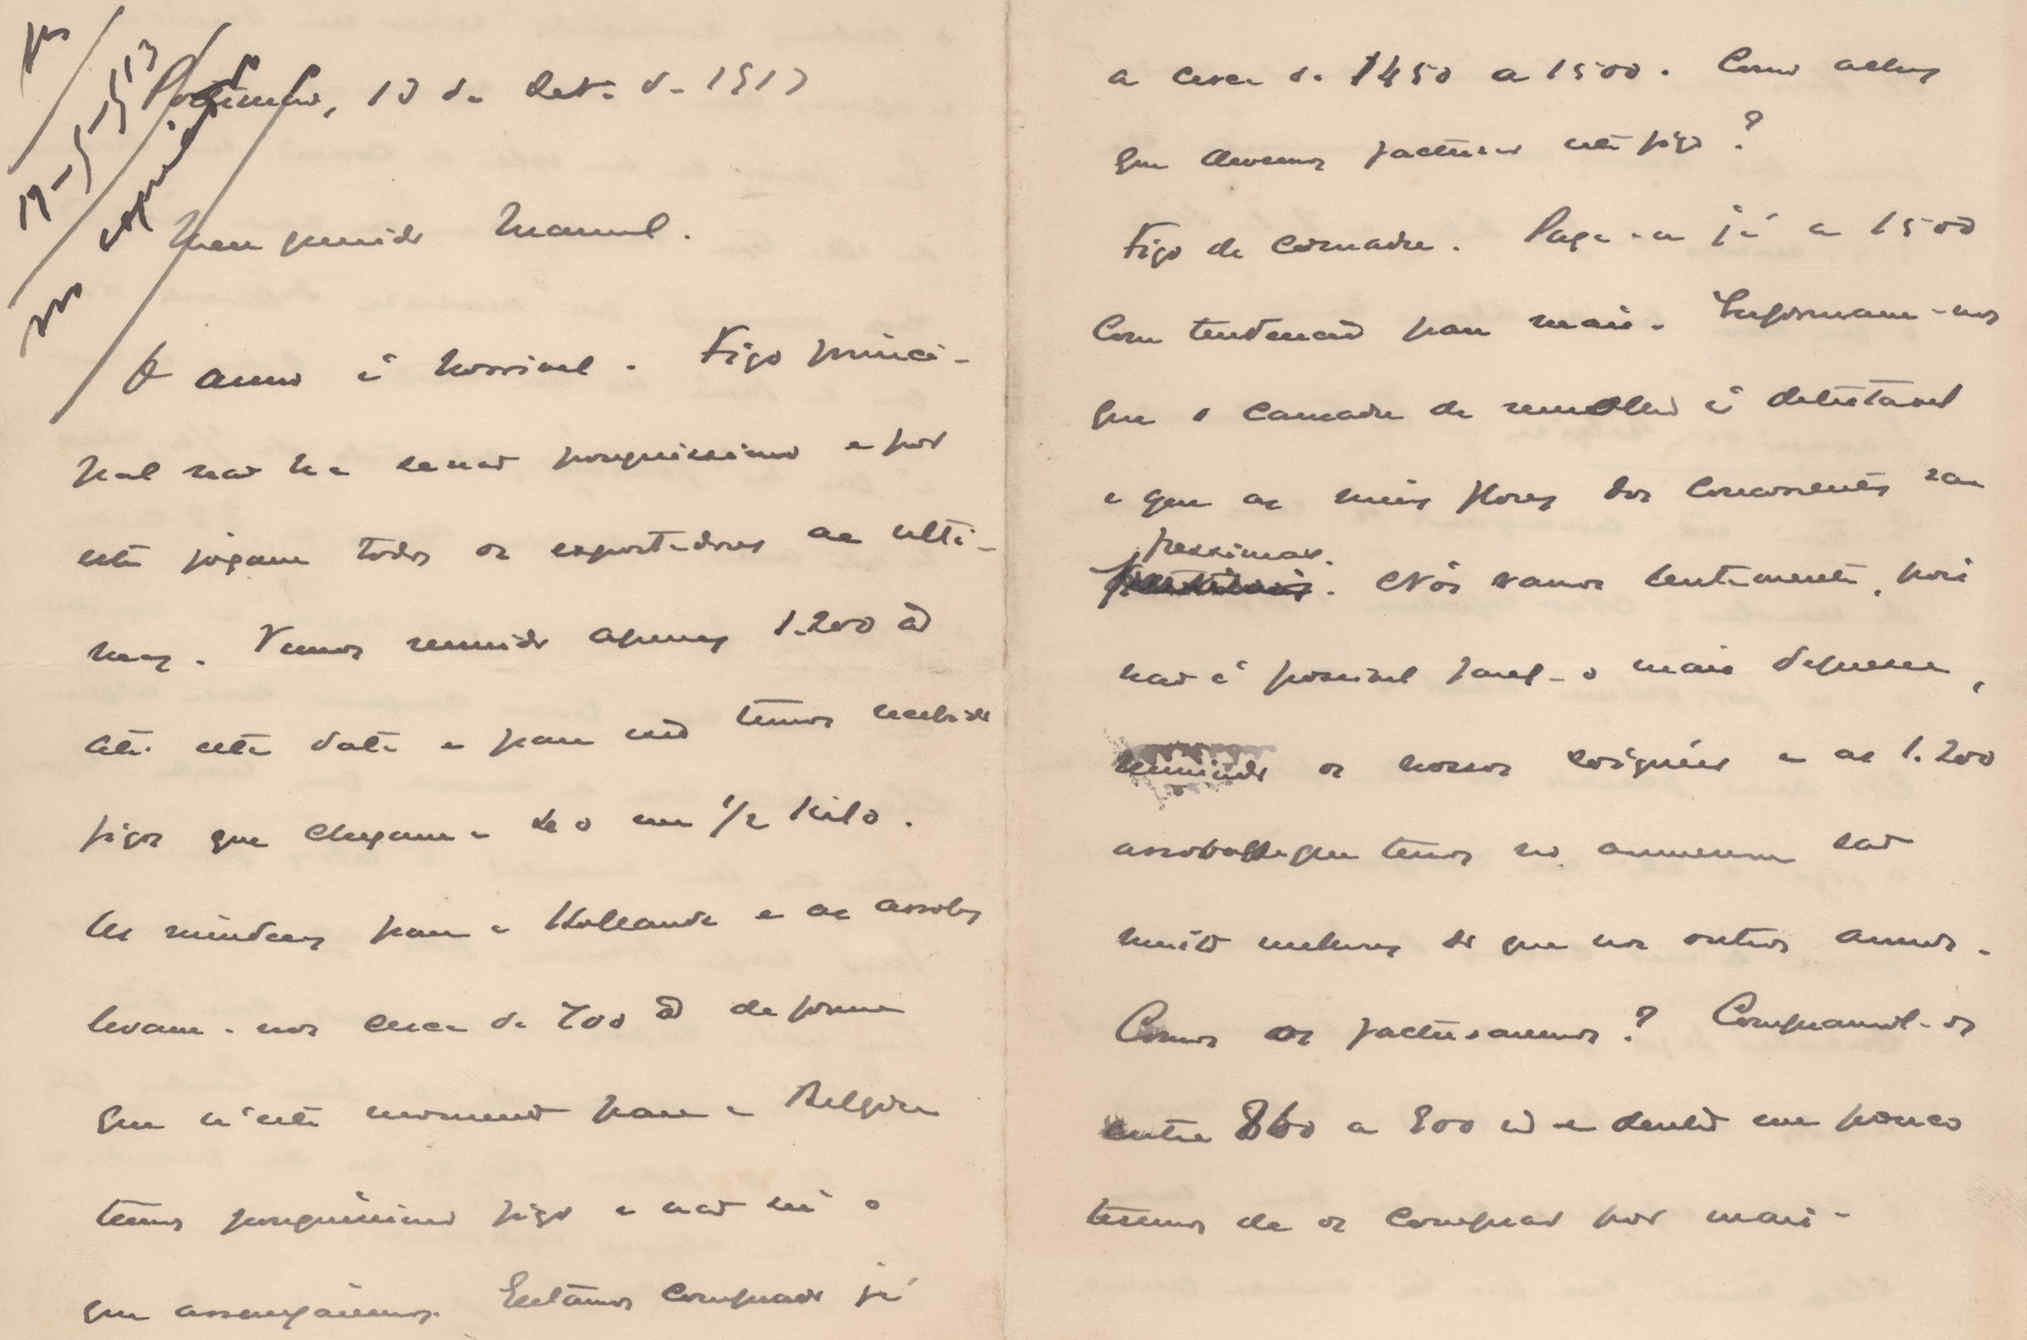 Portimão, 13 de Set. de 1913
Meu querido Manuel.
O anno é horrivel. Figo princi-
pal não ha senão pouquissimo e por
este jogam todos os exportadores as ulti-
mas. Temos reunido apenas 1.200 @
até esta data e para isso temos recebido
figos que chegam a 40 em 1/2 kilo.
As miudezas para a Hollanda e as arrobas
levam-nos cerca de 700 @ de forma
que n'este momento para a Belgica
temos pouquissimo figo e não sei o
que arranjaremos. Estamos comprando já
a cerca de 1450 a 1500. Como achas
que devemos facturar este figo?
Figo de comadre. Paga-se já a 1500
com tendencia para mais. Informam-nos
que o comadre de é detestavel
e que as meias flores dos concorrentes são
pessimas. Nós vamos lentamente, pois
não é possivel fazel-o mais depressa,
reunindo os nossos soignées e as 1.200
arrobas que temos no armazem são
muito melhores do que nos outros annos.
Como os facturaremos? Compramol-os
entre 860 a 900 rs e dentro em pouco
temos de os comprar por mais.